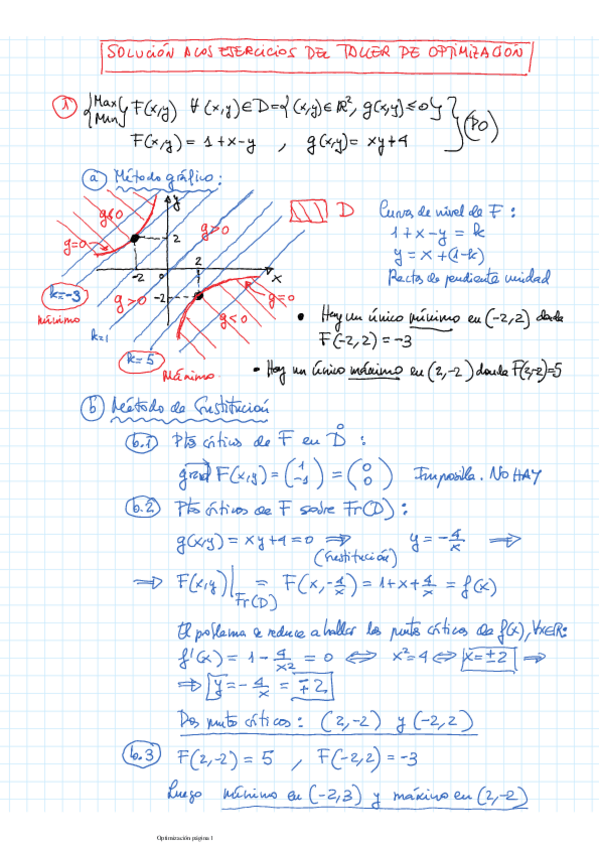 SOLUCIÓN A LOS EJERCICIOS DEL TALLER DE OPTIMIZACIÓN
1 {Max Min} F(x,y) ∀(x,y)∈D={(x,y)∈ℝ², g(x,y)≤0} (PO)
F(x,y) = 1+x-y , g(x,y)= xy+4
a Método gráfico:
y
g<0
g>0
D
Curvas de nivel de F:
g=0
2
1+x-y = k
y = x+(1-k)
-2
0
2
x
Rectas de pendiente unidad
k=-3
g>0
-2
g=0
mínimo
g<0
• Hay un único mínimo en (-2,2) donde
k=1
F(-2,2) = -3
k=5
Máximo
• Hay un único máximo en (2,-2) donde F(2,-2)=5
b Método de Sustitución
b.1 Ptos críticos de F en D̊ :
grad F(x,y) = (1 -1) = (0 0) Imposible. NO HAY
b.2 Ptos críticos de F sobre Fr(D):
g(x,y) = xy+4=0 ⟹ (Sustitución) y = -4/x ⟹
⟹ F(x,y)|Fr(D) = F(x,-4/x) = 1+x+4/x = f(x)
El problema se reduce a hallar los puntos críticos de f(x), ∀x∈ℝ:
f'(x) = 1 - 4/x² = 0 ⟺ x²=4 ⟺ x=±2 ⟹
⟹ y=-4/x = ∓2
Dos puntos críticos: (2,-2) y (-2,2)
b.3 F(2,-2) = 5 , F(-2,2) = -3
Luego mínimo en (-2,3) y máximo en (2,-2)
Optimización página 1